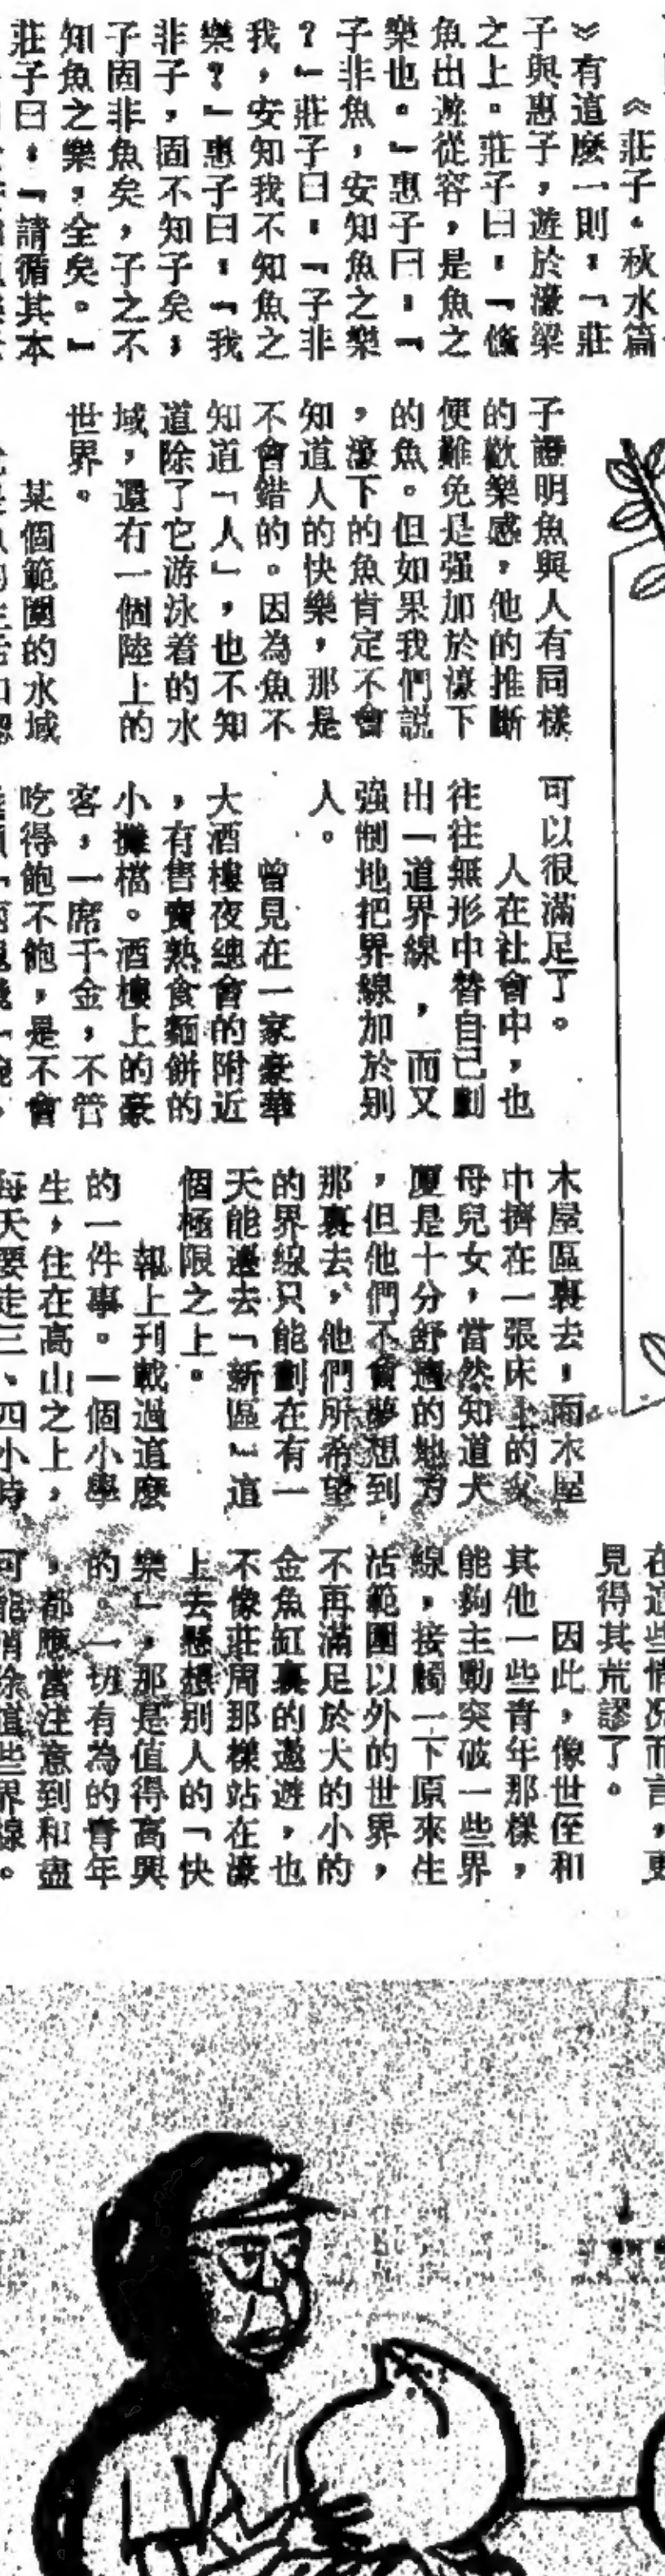 《莊子·秋水篇
》有這麼一則：「莊
子與惠子，遊於濠梁
之上。莊子曰：「鯈
魚出遊從容，是魚之
樂也。」惠子曰：「
子非魚，安知魚之樂
？」莊子曰：「子非
我，安知我不知魚之
樂？」惠子曰：「我
非子，固不知子矣；
子固非魚矣，子之不
知魚之樂，全矣。」
莊子曰：「請循其本
子證明魚與人有同樣
的歡樂感，他的推斷
便難免是强加於濠下
的魚。但如果我們説
，濠下的魚肯定不會
知道人的快樂，那是
不會錯的。因為魚不
知道「人」，也不知
道除了它游泳着的水
域，還有一個陸上的
世界。
某個範圍的水域
可以很滿足了。
人在社會中，也
往往無形中替自己劃
出一道界線，而又
强制地把界線加於别
人。
曾見在一家豪華
大酒樓夜總會的附近
，有售賣熟食麵餅的
小攤檔。酒樓上的豪
客，一席千金，不管
吃得飽不飽，是不會
木屋區裏去，而木屋
中擠在一張床上的父
母兒女，當然知道大
廈是十分舒適的地方
，但他們不會夢想到
那裏去，他們所希望
的界線只能劃在有一
天能遷去「新區」這
個極限之上。
報上刊載過這麼
的一件事。一個小學
生，住在高山之上，
每天要走三、四小時
在這些情况而言，更
見得其荒謬了。
因此，像世侄和
其他一些青年那樣，
能夠主動突破一些界
線，接觸一下原來生
活範圍以外的世界，
不再滿足於大的小的
金魚缸裏的遨遊，也
不像莊周那樣站在濠
上去懸想别人的「快
樂」，那是值得高興
的。一切有為的青年
，都應當注意到和盡
可能消除這些界線。